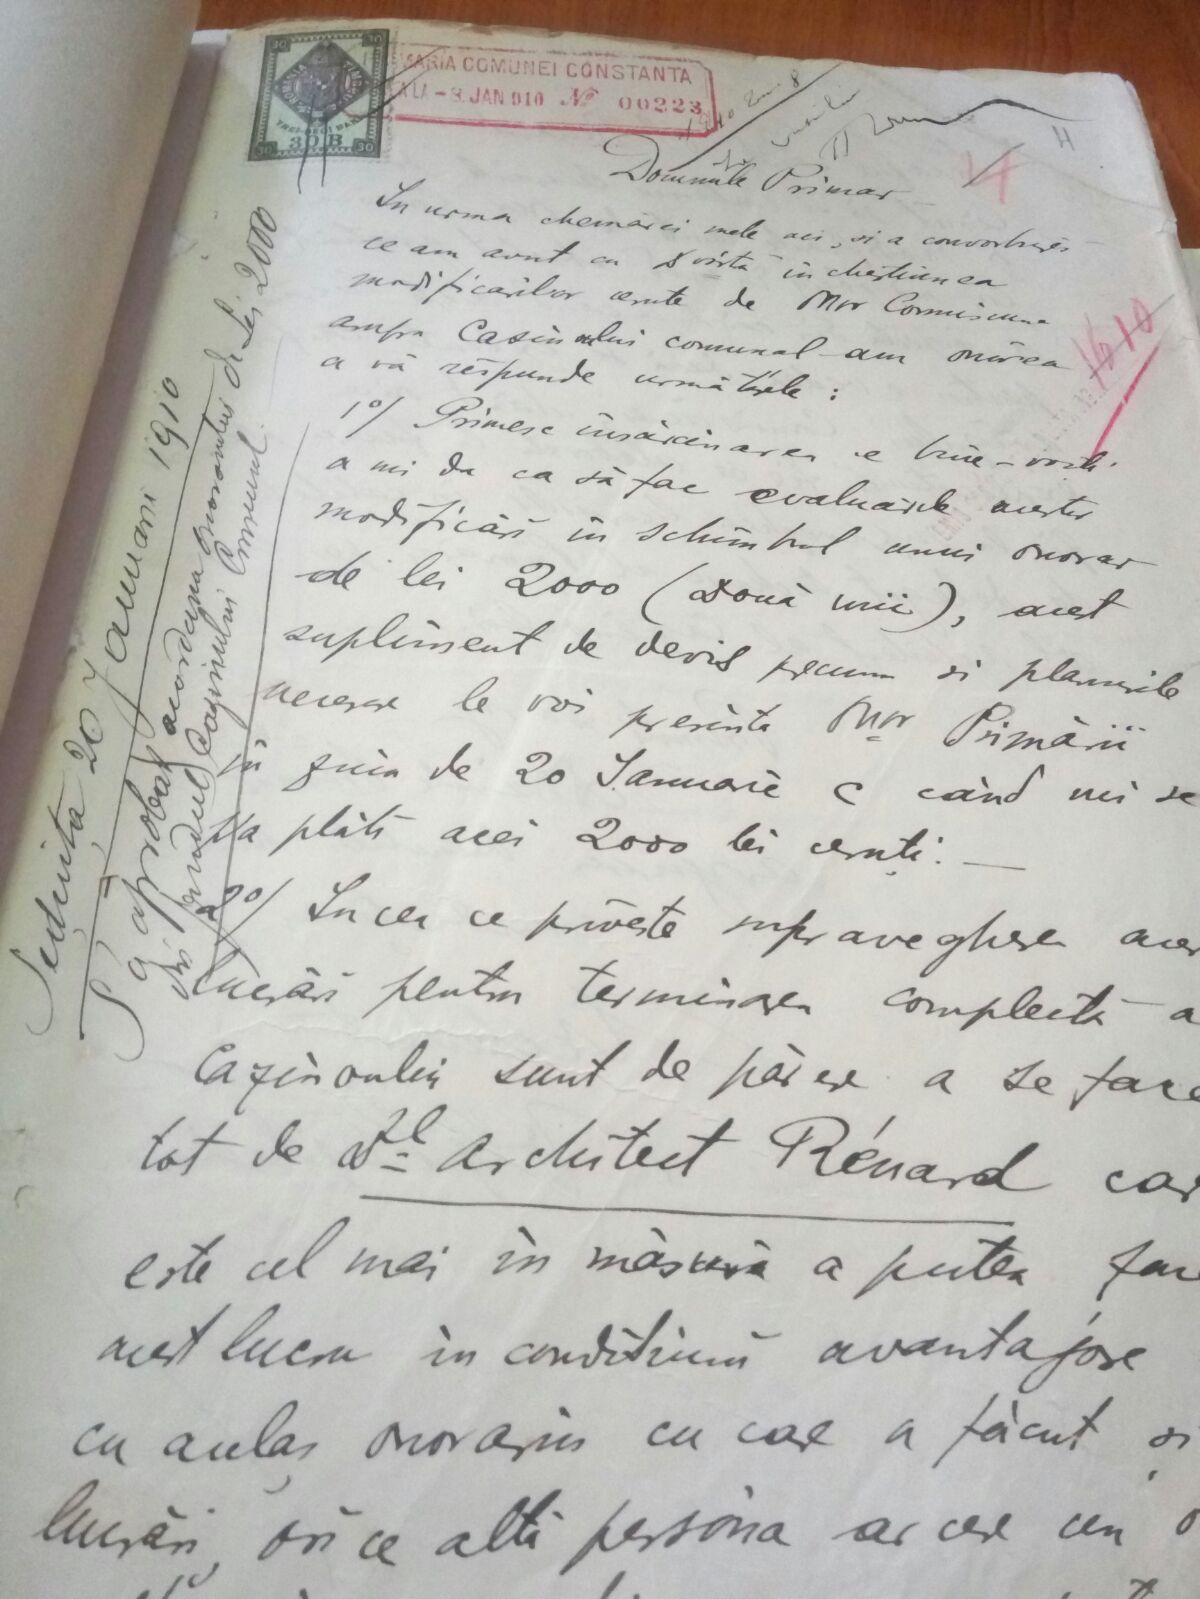 30 30
TREI-DECI BANI
30 B
30 30
MARIA COMUNEI CONSTANTA
LA - 8. JAN 910 № 00223
Domnule Primar
In urma chemărei mele aci, și a convorbirei
ce am avut cu Dvóstă în chestiunea
modificărilor cerute de Onor Comisiune
asupra Casinoului comunal am onórea
a vă réspunde următórele :
1º/ Primesc însărcinarea ce bine-voiți
a mi da ca să fac evaluările acestor
modificări în schimbul unui onorar
de lei 2000 (două mii), acest
supliment de deviz precum si planurile
necesare le voi presinta Onor Primării
în ziua de 20 Ianuarie c când mi se
va plăti acei 2000 lei ceruți. —
2º/ In cea ce privește supravegherea acestor
lucrări pentru terminarea complectă a
Cazinoului sunt de părere a se face
tot de Dl architect Rénard car
este cel mai în măsură a putea face
acest lucru în condițiuni avantajóse
cu aelaș onorariu cu care a făcut și
lucrări, ori ce altă persóna ar cere un
Ședința 20 Januari 1910
S'a aprobat acordarea onorarului de Lei 2000
din fondul Cazinului Comunal.
1610